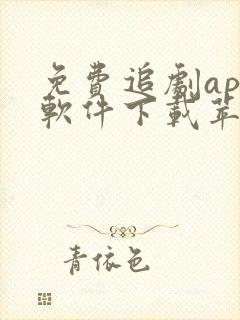 免費追劇ap
軟件下載苹
青依色